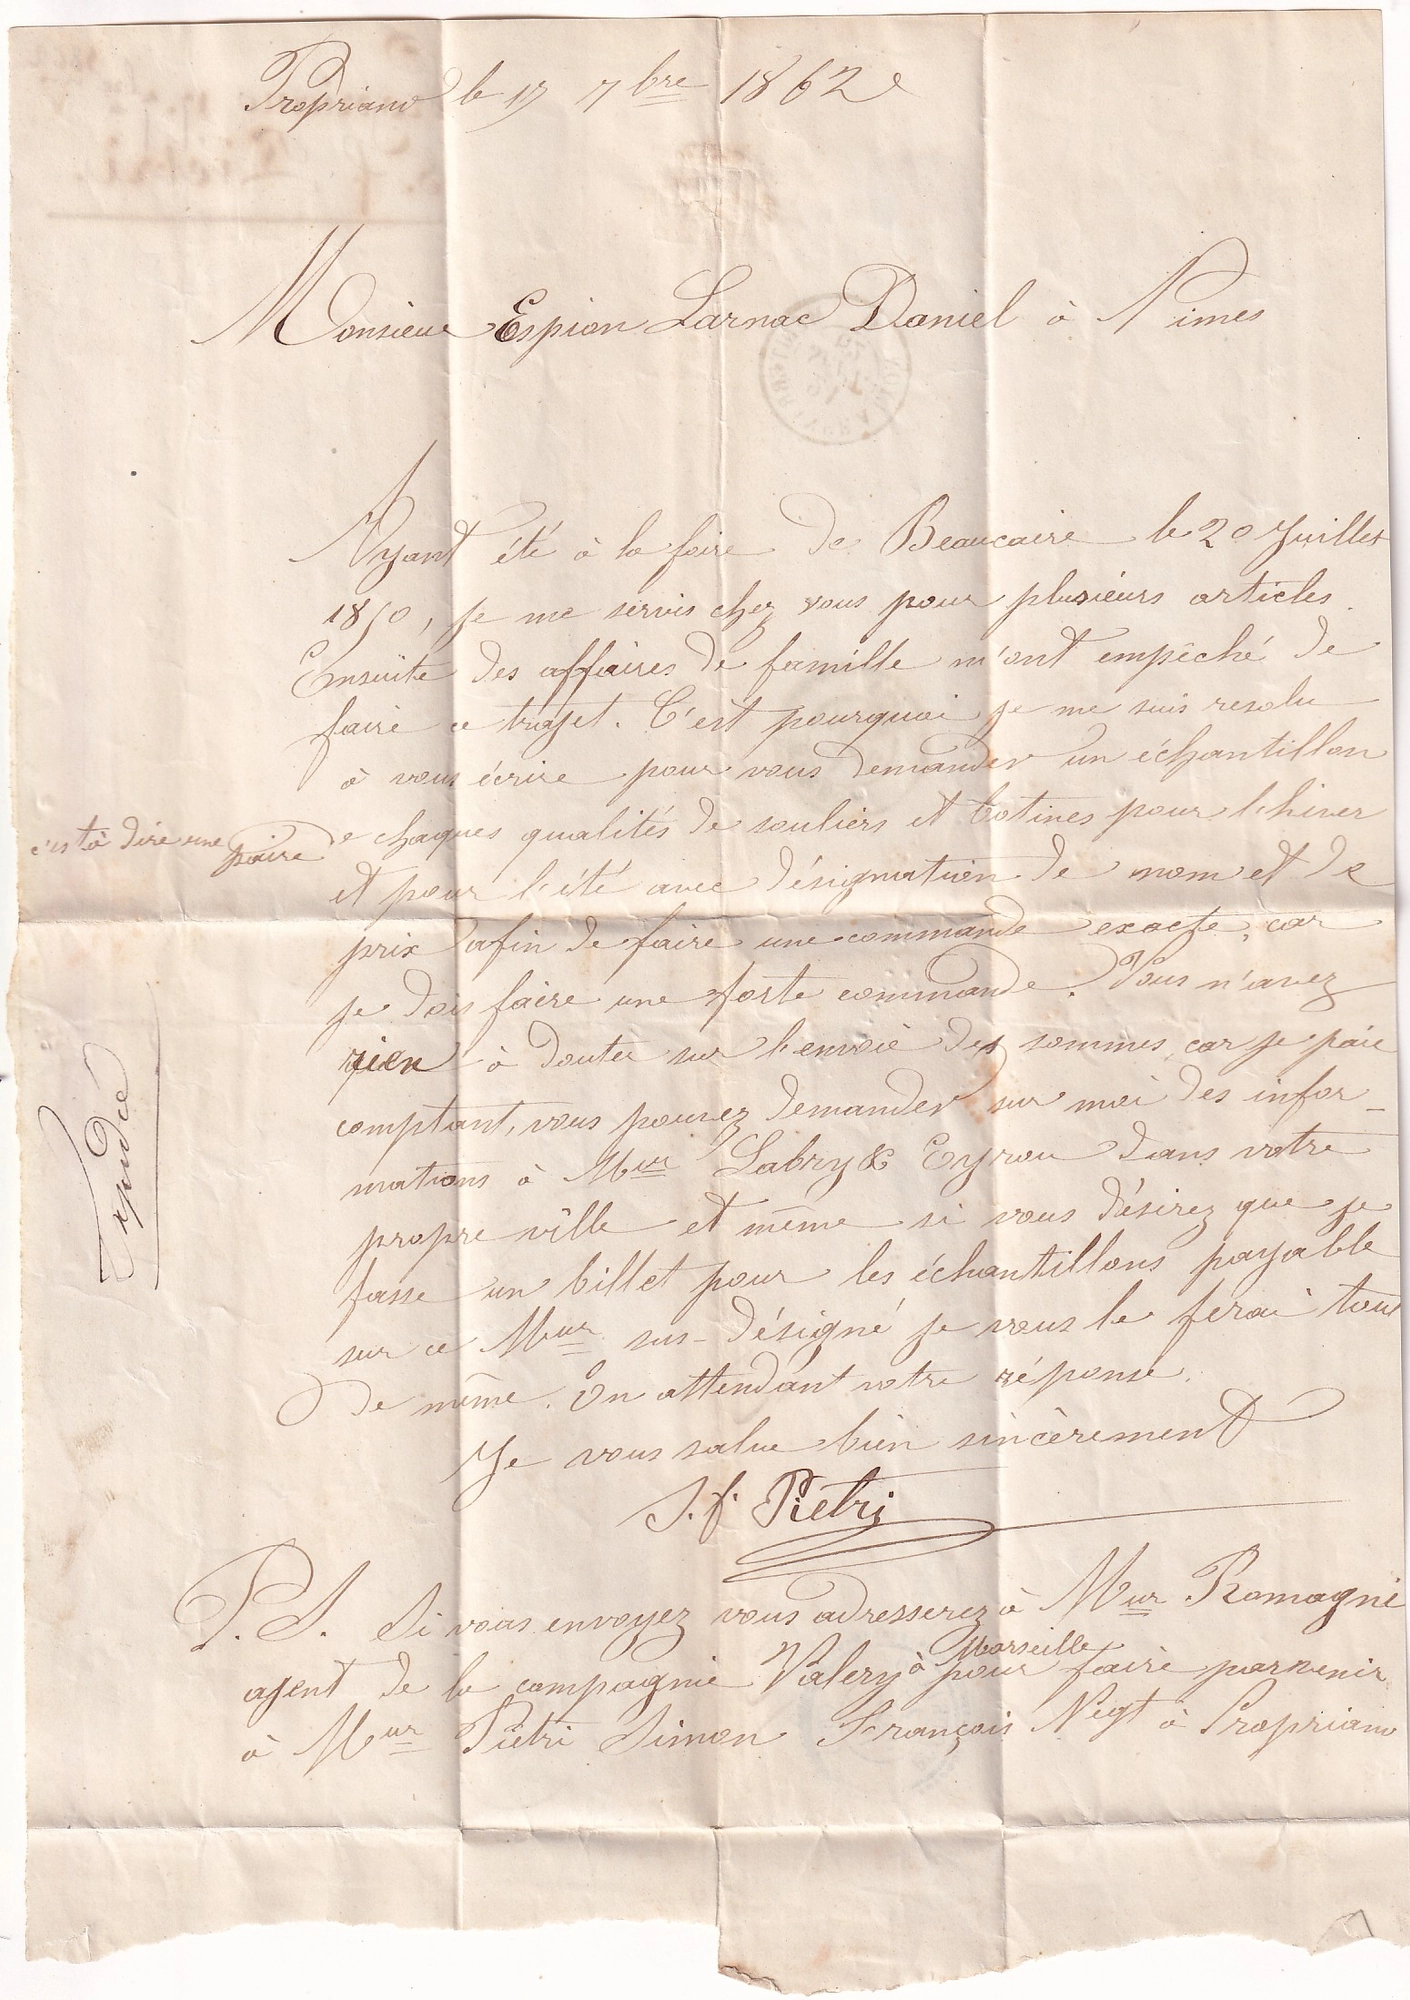 Propriano le 17 7bre 1862
Monsieur Espion Larnac Daniel à Nimes
Ayant été à la foire de Beaucaire le 20 Juillet
1850, je me servis chez vous pour plusieurs articles.
Ensuite des affaires de famille m'ont empêché de
faire ce trajet. C'est pourquoi je me suis resolu
à vous écrire pour vous demander un échantillon
c'est à dire une paire
de chaques qualités de souliers et botines pour l'hiver
et pour l'été avec désignation de nom et de
prix afin de faire une commande exacte, car
je dois faire une forte commande. Vous n'avez
rien à douter sur l'envoie des sommes, car je paie
comptant, vous pouvez demander sur moi des infor-
mations à Mur Labry & Eyrou dans votre
propre ville et même si vous désirez que je
fasse un billet pour les échantillons payable
sur ce Mur sus-désigné je vous le ferai tout
de même. En attendant votre réponse.
Je vous salue bien sincèrement
S. f. Pietri
P. S. Si vous envoyez vous adresserez à Mur Romagni
agent de la compagnie Valery à Marseille pour faire parvenir
à Mur Pietri Simon François Negt à Propriano